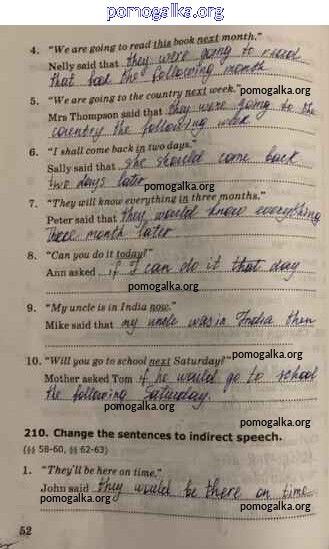 pomogalka.org
4. "We are going to read this book next month."
Nelly said that they were going to read
that book the following month
pomogalka.org
5. "We are going to the country next week."
Mrs Thompson said that they were going to the
country the following week
pomogalka.org
6. "I shall come back in two days."
Sally said that she should come back
two days later
pomogalka.org
7. "They will know everything in three months."
Peter said that they would know everything
three month later
pomogalka.org
8. "Can you do it today?"
Ann asked if I can do it that day
pomogalka.org
9. "My uncle is in India now."
Mike said that my uncle was in India then
pomogalka.org
10. "Will you go to school next Saturday?"
pomogalka.org
Mother asked Tom if he would go to school
the following Saturday.
pomogalka.org
210. Change the sentences to indirect speech.
(§§ 58-60, §§ 62-63)
pomogalka.org
1. "They'll be here on time."
John said they would be there on time
pomogalka.org
52
pomogalka.org